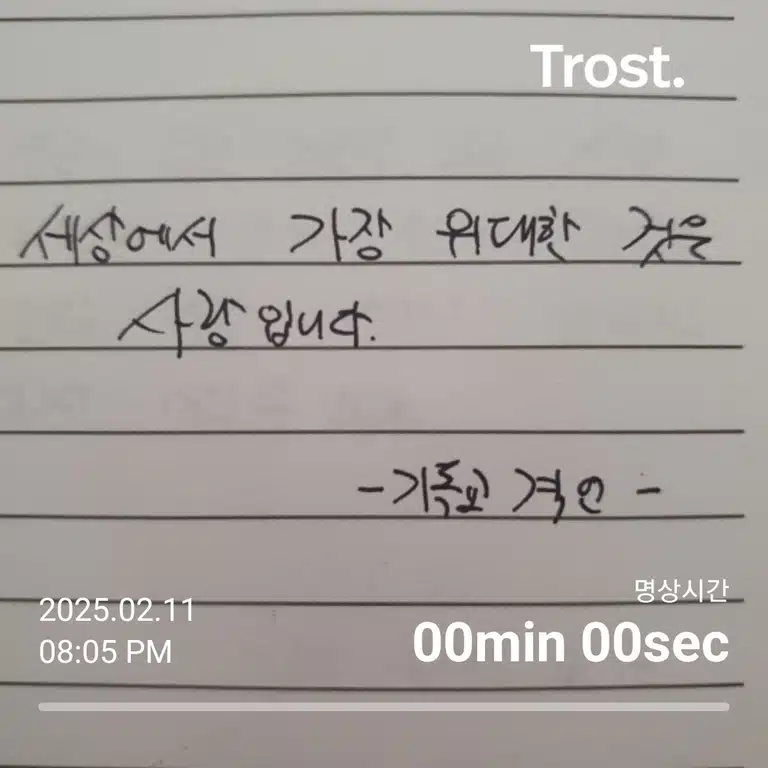 Trost.
세상에서 가장 위대한 것은
사랑입니다.
- 기독교 격언 -
명상시간
2025.02.11
00min 00sec
08:05 PM